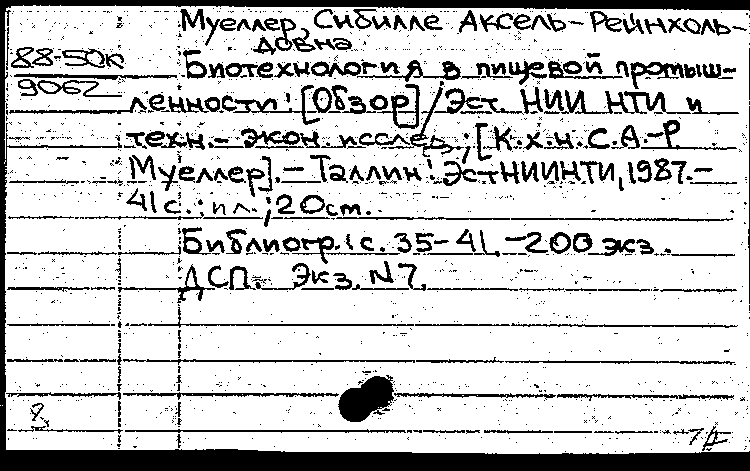 Муеллер, Сибилле Аксель-Рейнхоль-
довна
88-50к
9062
Биотехнология в пищевой промыш-
ленности: [Обзор] / Эст. НИИ НТИ и
техн.-экон. исслед.; [К.х.н. С.А.-Р.
Муеллер]. - Таллин: ЭстНИИНТИ, 1987.-
41 с.: ил.; 20 см.
Библиогр.: с. 35-41. - 200 экз.
ДСП. Экз. N 7.
8